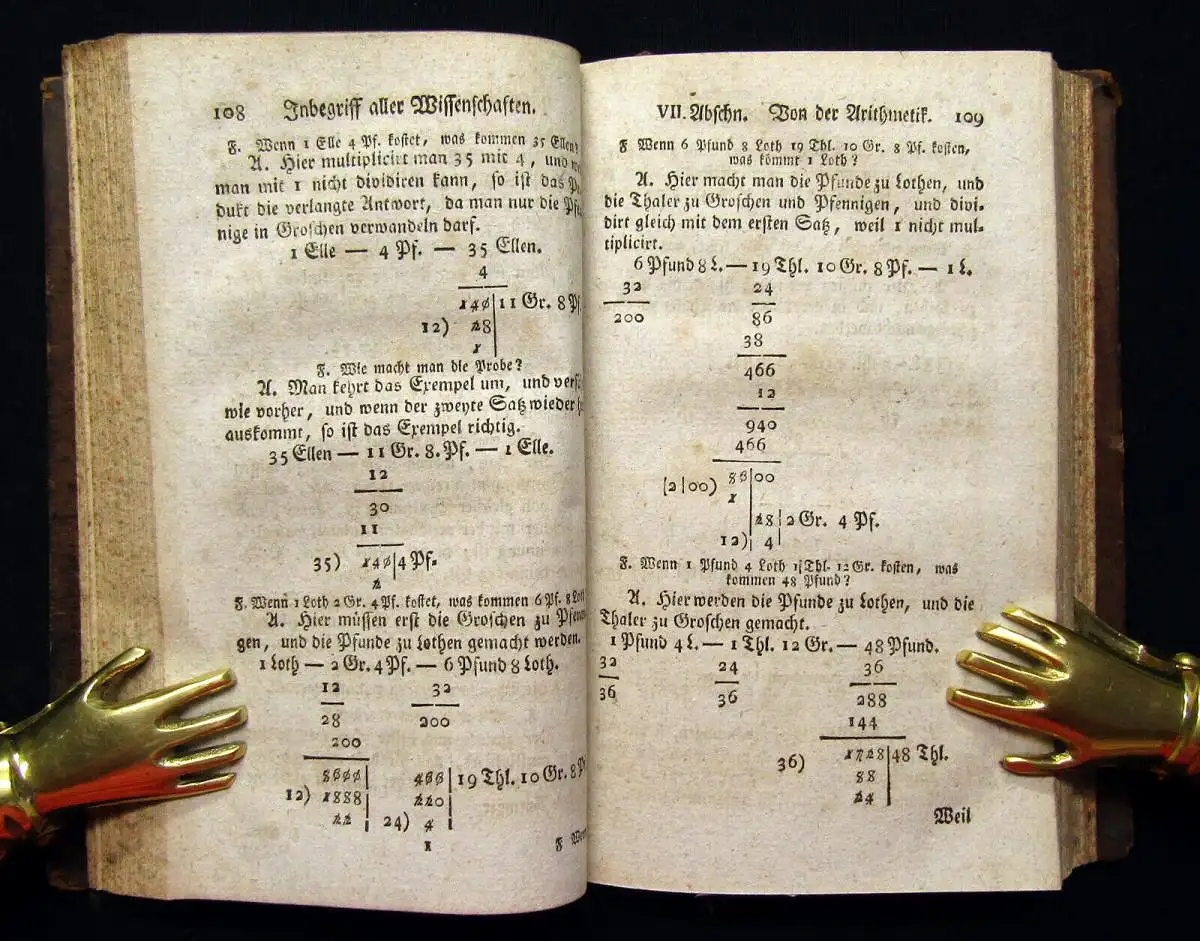 108 Inbegriff aller Wissenschaften.
F. Wenn 1 Elle 4 Pf. kostet, was kommen 35 Ellen?
A. Hier multiplicirt man 35 mit 4, und
man mit 1 nicht dividiren kann, so ist das
dukt die verlangte Antwort, da man nur die
nige in Groschen verwandeln darf.
1 Elle — 4 Pf. — 35 Ellen.
4
140 | 11 Gr. 8 Pf.
12) 28
1
F. Wie macht man die Probe?
A. Man kehrt das Exempel um, und
wie vorher, und wenn der zweyte Satz wieder
auskommt, so ist das Exempel richtig.
35 Ellen — 11 Gr. 8. Pf. — 1 Elle.
12
30
11
35) 140 | 4 Pf.
2
F. Wenn 1 Loth 2 Gr. 4 Pf. kostet, was kommen 6 Pf. 8 Loth
A. Hier müssen erst die Groschen zu
gen, und die Pfunde zu Lothen gemacht werden.
1 Loth — 2 Gr. 4 Pf. — 6 Pfund 8 Loth.
12 32
28 200
200
5600 | 466 | 19 Thl. 10 Gr. 8 Pf
12) 1888 | 220
22 | 24) 4
1
F
VII. Abschn. Von der Arithmetik. 109
F Wenn 6 Pfund 8 Loth 19 Thl. 10 Gr. 8 Pf. kosten,
was kömmt 1 Loth?
A. Hier macht man die Pfunde zu Lothen, und
die Thaler zu Groschen und Pfennigen, und divi-
dirt gleich mit dem ersten Satz, weil 1 nicht mul-
tiplicirt.
6 Pfund 8 L. — 19 Thl. 10 Gr. 8 Pf. — 1 L.
32 24
200 86
38
466
12
940
466
(2|00) 56|00
1
28 | 2 Gr. 4 Pf.
12) 4
F. Wenn 1 Pfund 4 Loth 1 Thl. 12 Gr. kosten, was
kommen 48 Pfund?
A. Hier werden die Pfunde zu Lothen, und die
Thaler zu Groschen gemacht.
1 Pfund 4 L. — 1 Thl. 12 Gr. — 48 Pfund.
32 24 36
36 36 288
144
36) 1728 | 48 Thl.
88
24
Weil